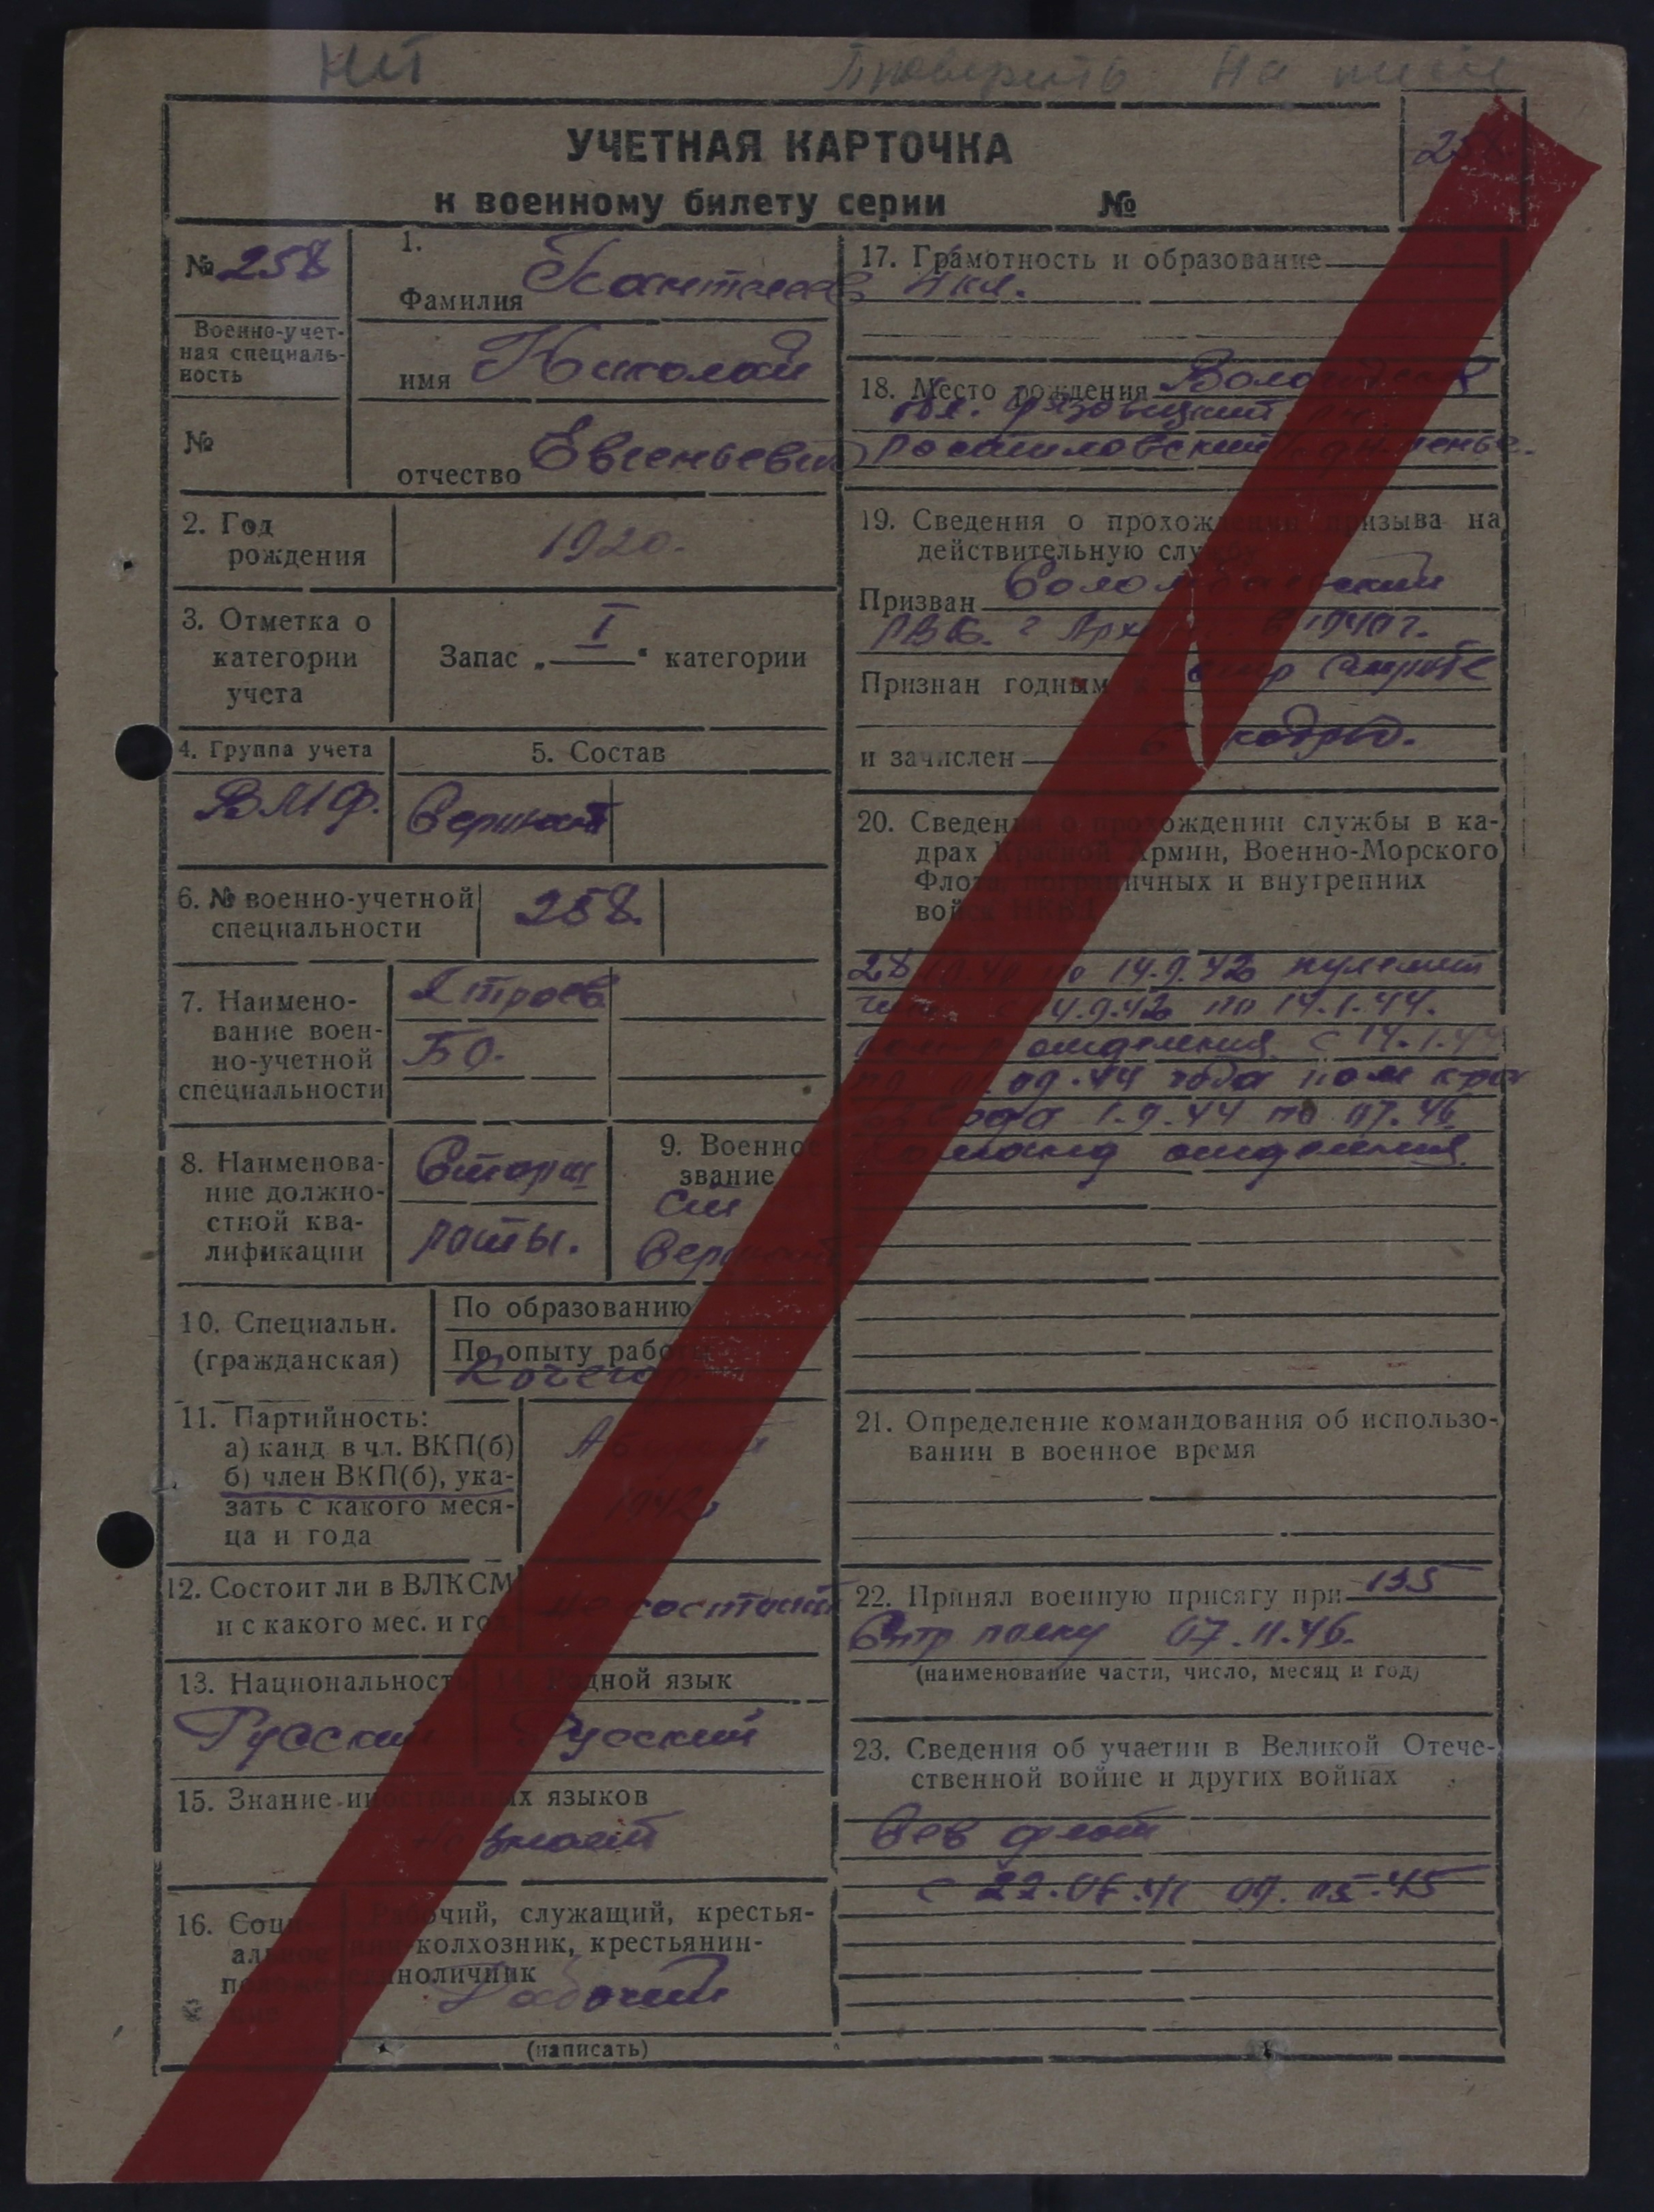 нет Проверить На
УЧЕТНАЯ КАРТОЧКА
к военному билету серии №
№ 258
1.
Фамилия
Военно-учет-
ная специаль-
ность
имя Николай
№
отчество Евгеньевич
2. Год
рождения
1920.
3. Отметка о
категории
учета
Запас „ I “ категории
4. Группа учета
5. Состав
ВМФ.
Сержант
6. № военно-учетной
специальности
258.
7. Наимено-
вание воен-
но-учетной
специальности
Строев
БО.
8. Наименова-
ние должно-
стной ква-
лификации
Старш
роты.
9. Военное
звание
Сержант
10. Специальн.
(гражданская)
По образованию
По опыту работы
Кочегар
11. Партийность:
а) канд в чл. ВКП(б)
б) член ВКП(б), ука-
зать с какого меся-
ца и года
1942
12. Состоит ли в ВЛКСМ
и с какого мес. и год
не состоит
13. Национальность
14. Родной язык
Русский
Русский
15. Знание иностранных языков
не знает
16. Соци-
альное
положе-
ние
Рабочий, служащий, крестья-
нин-колхозник, крестьянин-
единоличник
Рабочий
(написать)
17. Грамотность и образование
4 кл.
18. Место рождения Вологодская
обл. Грязовецкий
19. Сведения о прохождении призыва на
действительную службу
Призван Соломбальский
РВК. г Арх в 1940 г.
Признан годным к стр службе
и зачислен в кадры.
20. Сведения о прохождении службы в ка-
драх Красной Армии, Военно-Морского
Флота, пограничных и внутренних
войск НКВД
по 14.9.42 пулемет
14.9.42 по 14.1.44.
отделения с 14.1.44
09.44 года пом
взвода 1.9.44 по 07.46
Команд отделения
21. Определение командования об использо-
вании в военное время
22. Принял военную присягу при 135
Стр полку 07.11.46.
(наименование части, число, месяц и год)
23. Сведения об участии в Великой Отече-
ственной войне и других войнах
Сев флот
с 22.06.41 09.05.45